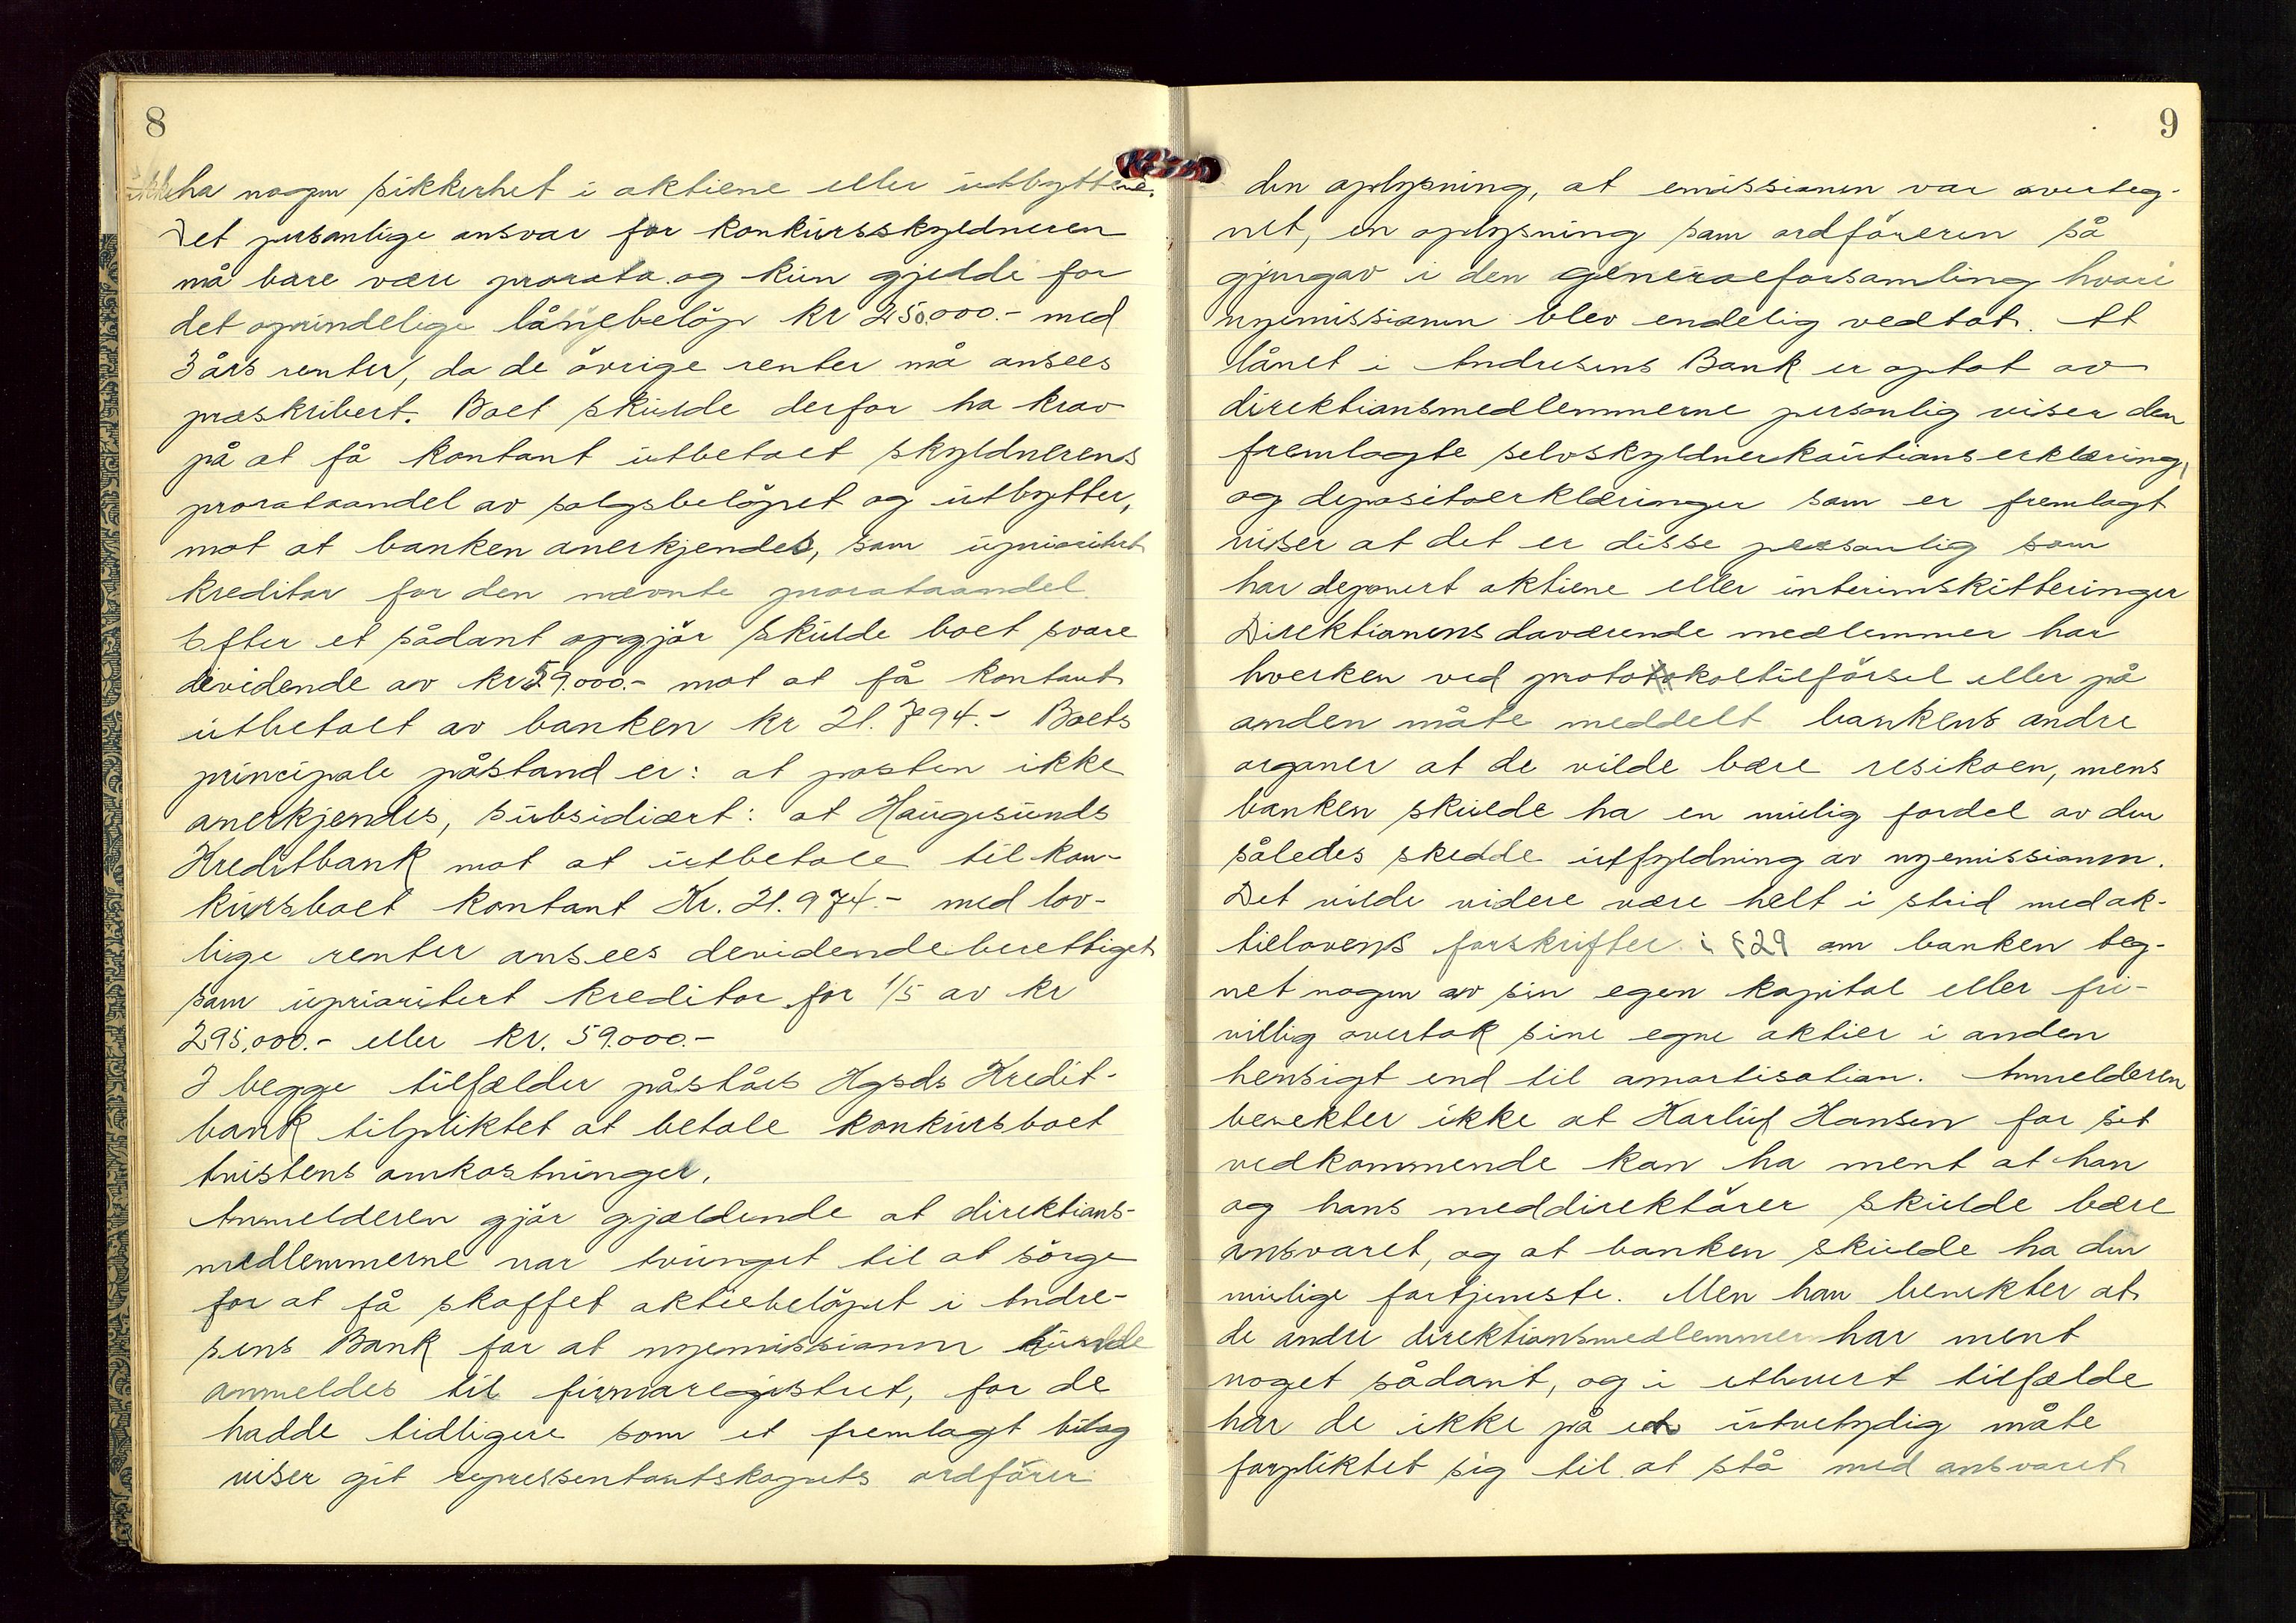 8
ikke ha nogen sikkerhet i aktiene eller utbyttene.
Det personlige ansvar for konkursskyldneren
må bare være prorata og kun gjelde for
det oprindelige lånebeløp kr 250.000.- med
3 års renter, da de øvrige renter må ansees
præskribert. Boet skulde derfor ha krav
på at få kontant utbetalt skyldnerens
prorataandel av salgsbeløpet og utbytter,
mot at banken anerkjendes, som uprioritert
kreditor for den nævnte prorataandel
Efter et sådant opgjør skulde boet svare
devidende av kr 59.000.- mot at få kontant
utbetalt av banken kr 21.794.- Boets
principale påstand er: at posten ikke
anerkjendes, subsidiært: at Haugesunds
Kreditbank mot at utbetale til kon-
kursboet kontant Kr. 21.974.- med lov-
lige renter ansees devidendeberettiget
som uprioritert kreditor for 1/5 av kr
295.000.- eller kr. 59.000.-
I begge tilfælder påståes Hgsds Kredit-
bank tilpliktet at betale konkursboet
tvistens omkostninger.
Anmelderen gjør gjældende at direktions-
medlemmerne var tvunget til at sørge
for at få skaffet aktiebeløpet i Andre-
sens Bank for at nyemissionen kunde
anmeldes til firmaregistret, for de
hadde tidligere som et fremlagt bilag
viser git representantskapets ordfører
9
den oplysning, at emissionen var overteg-
net, en oplysning som ordføreren så
gjengav i den generalforsamling hvori
nyemissionen blev endelig vedtat. At
lånet i Andresens Bank er optat av
direktionsmedlemmerne personlig viser den
fremlagte selvskyldnerkautionserklæring,
og depositoerklæringer som er fremlagt
viser at det er disse personlig som
har deponert aktiene eller interimskitteringer
Direktionens daværende medlemmer har
hverken ved protokoltilførsel eller på
anden måte meddelt bankens andre
organer at de vilde bære resikoen, mens
banken skulde ha en mulig fordel av den
således skedde utfyldning av nyemissionen.
Det vilde videre være helt i strid med ak-
tielovens forskrifter i § 29 om banken teg-
net nogen av sin egen kapital eller fri-
villig overtok sine egne aktier i anden
hensigt end til amortisation. Anmelderen
benekter ikke at Harluf Hansen for sit
vedkommende kan ha ment at han
og hans meddirektører skulde bære
ansvaret, og at banken skulde ha den
mulige fortjeneste. Men han benekter at
de andre direktionsmedlemmer har ment
noget sådant, og i ethvert tilfælde
har de ikke på en utvetydig måte
forpliktet sig til at stå med ansvaret